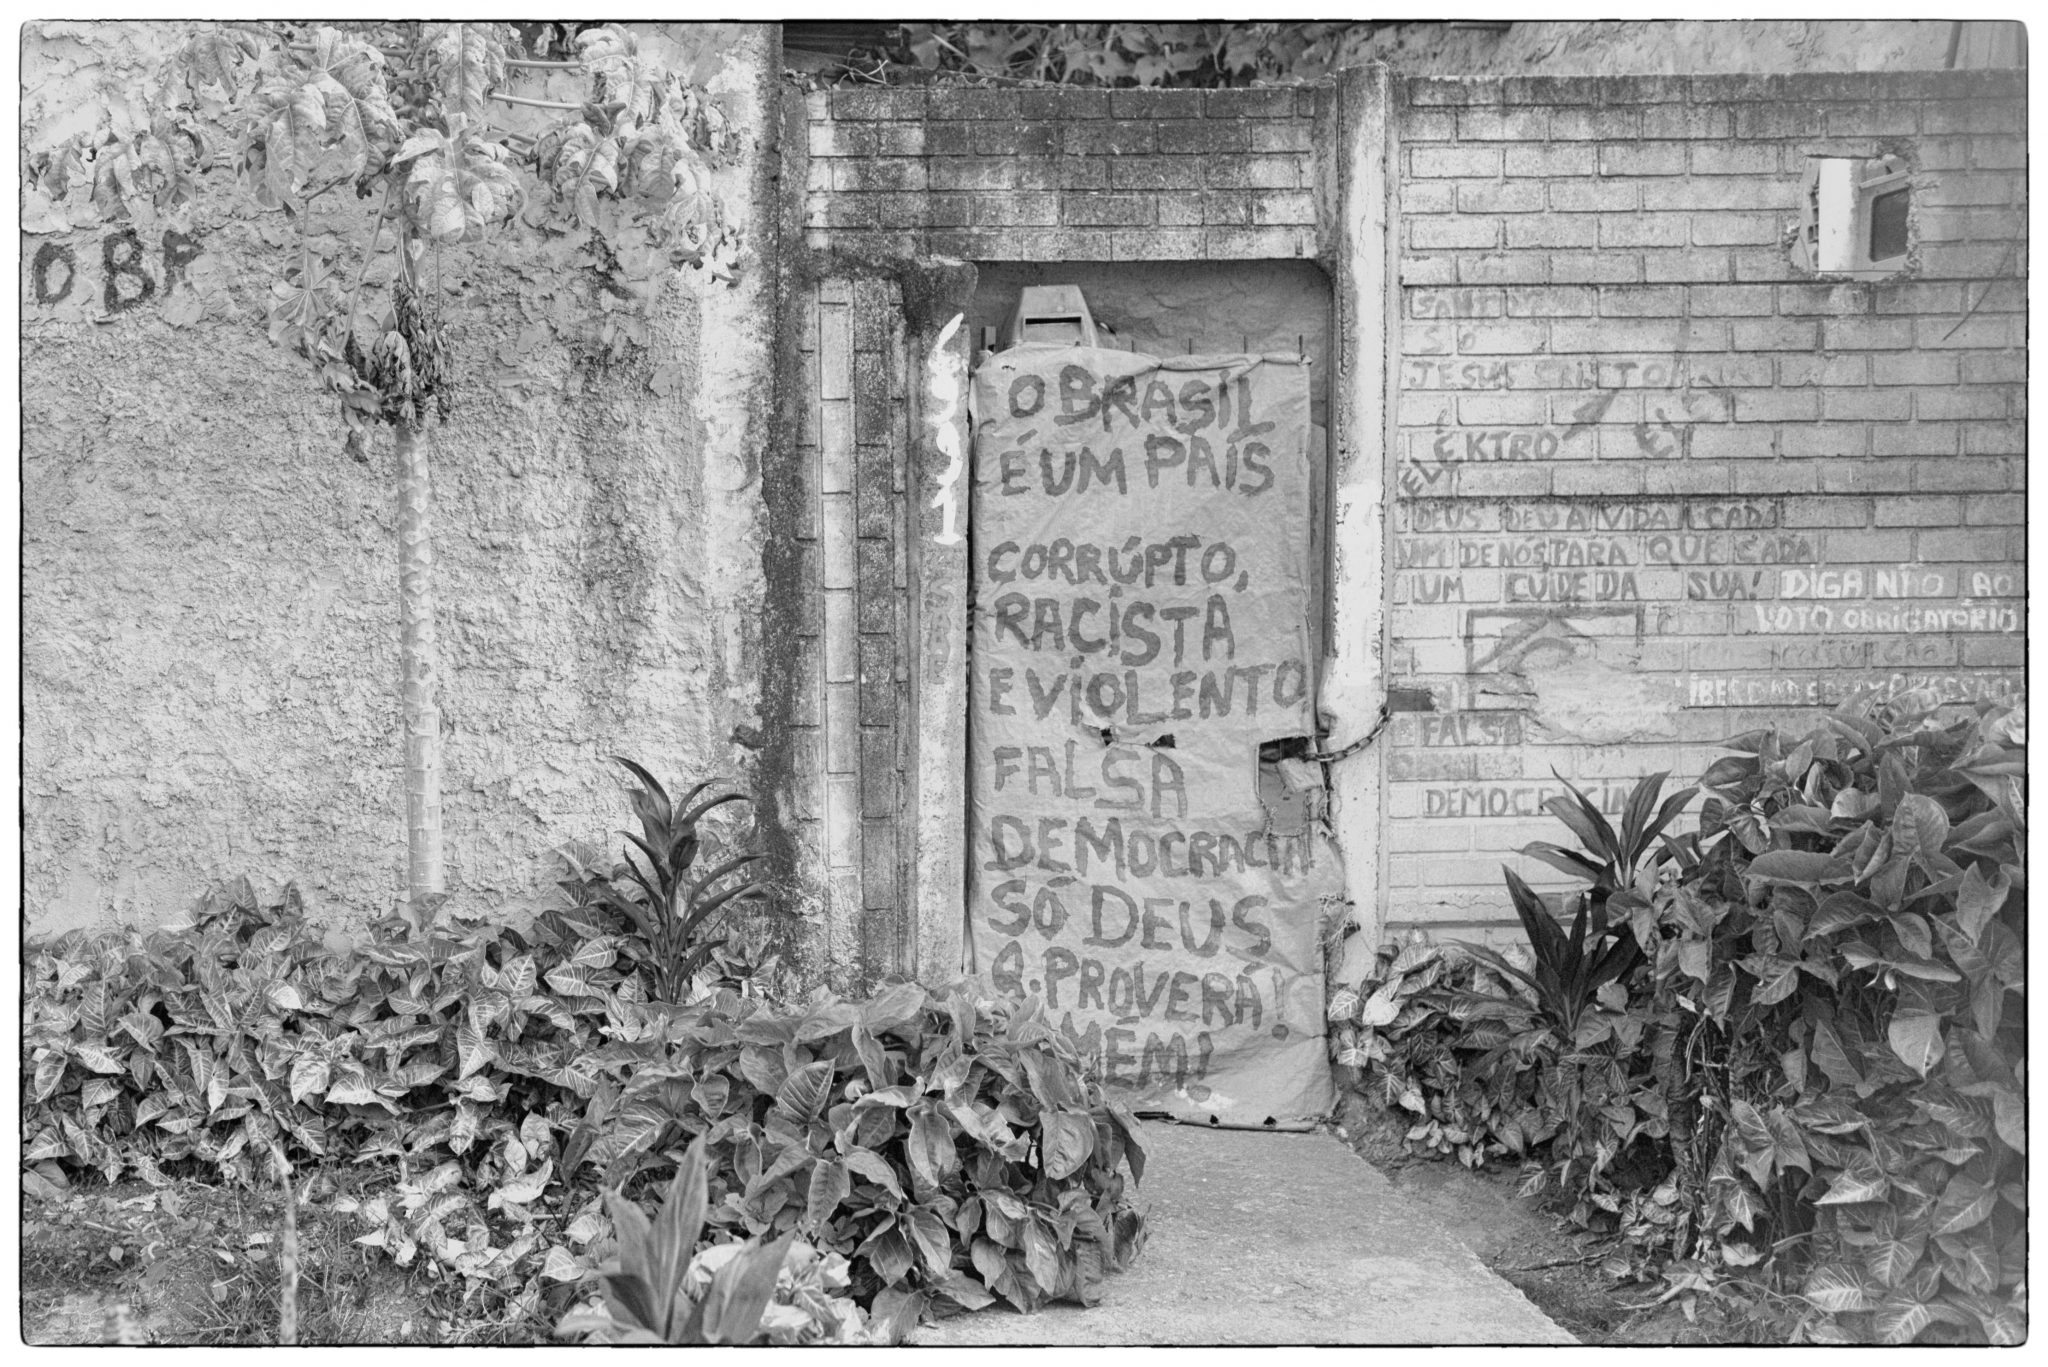 O BR
1991
O BRASIL
É UM PAÍS
CORRÚPTO,
RACISTA
E VIOLENTO
FALSA
DEMOCRACIA!
SÓ DEUS
Q. PROVERÁ!
AMÉM!
SÓ
JESUS CRISTO
ELÉKTRO
DEUS DEU A VIDA A CADA
UM DE NÓS PARA QUE CADA
UM CUIDE DA SUA!
DIGA NÃO AO
VOTO OBRIGATÓRIO
FALSA
DEMOCRACIA